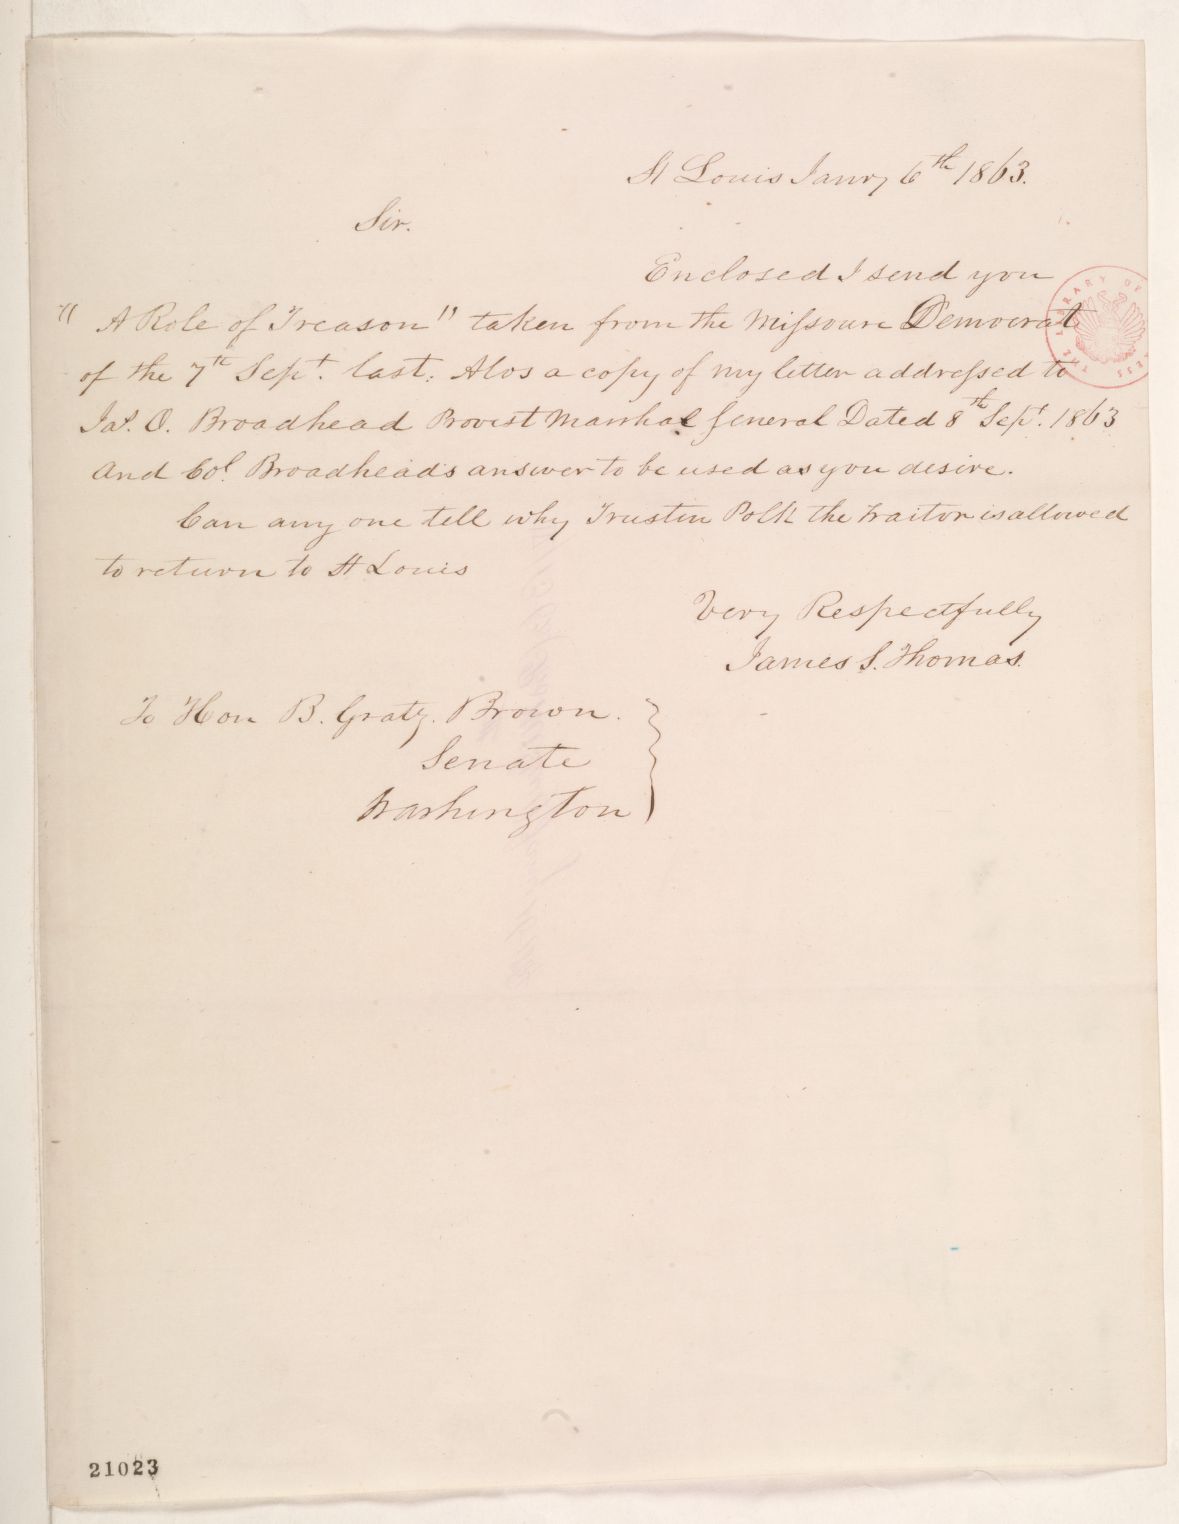 St Louis Janry 6th 1863.
Sir.
Enclosed I send you
"A Role of Treason" taken from the Missouri Democrat
of the 7th Sept. last. Alos a copy of my letter addressed to
Jas. O. Broadhead Provost Marshal General Dated 8th Sept. 1863
And Col. Broadheads answer to be used as you desire.
Can any one tell why Trusten Polk the traitor is allowed
to return to St Louis
Very Respectfully
James S. Thomas.
To Hon B. Gratz. Brown.
Senate
Washington
THE LIBRARY OF
21023